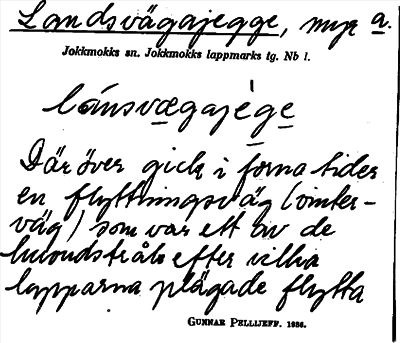 Landsvägajegge, myr a.
Jokkmokks sn. Jokkmokks lappmarks tg. Nb l.
lánsvægajége
Där över gick i forna tider
en flyttningsväg (vinter-
väg) som var ett av de
huvudstråk efter vilka
lapparna plägade flytta
GUNNAR PELLIJEFF. 1936.